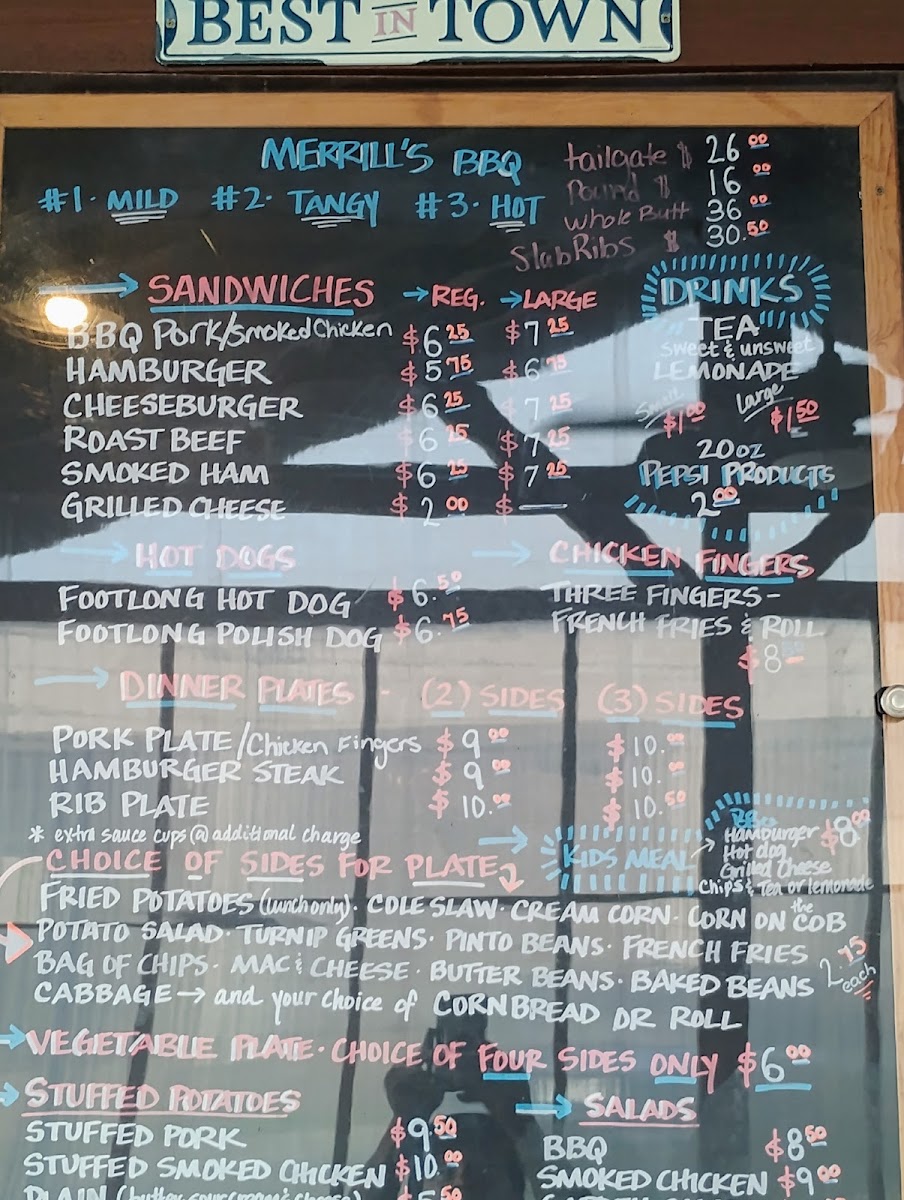 BEST IN TOWN
MERRILL'S BBQ
#1. MILD #2. TANGY #3. HOT
tailgate $ 26 00
Pound $ 16 00
Whole Butt 36 00
Slab Ribs $ 30.50
→ SANDWICHES → REG. → LARGE
BBQ Pork/Smoked Chicken $6 25 $7 25
HAMBURGER $5 75 $6 75
CHEESEBURGER $6 25 $7 25
ROAST BEEF $6 25 $7 25
SMOKED HAM $6 25 $7 25
GRILLED CHEESE $2 00 $ —
DRINKS
TEA
Sweet & unsweet
LEMONADE
Small Large
$1 00 $1 50
20oz
PEPSI PRODUCTS
2 00
→ HOT DOGS
FOOTLONG HOT DOG $6.50
FOOTLONG POLISH DOG $6.75
→ CHICKEN FINGERS
THREE FINGERS -
FRENCH FRIES & ROLL
$8
→ DINNER PLATES - (2) SIDES (3) SIDES
PORK PLATE/Chicken Fingers $9 00 $10.00
HAMBURGER STEAK $9 00 $10.00
RIB PLATE $10.00 $10.50
* extra sauce cups @ additional charge
→ KIDS MEAL → BBQ
Hamburger $8 00
Hot dog
Grilled Cheese
Chips & Tea or lemonade
CHOICE OF SIDES FOR PLATE
FRIED POTATOES (lunch only) · COLE SLAW · CREAM CORN · CORN ON the COB
POTATO SALAD · TURNIP GREENS · PINTO BEANS · FRENCH FRIES
BAG OF CHIPS · MAC & CHEESE · BUTTER BEANS · BAKED BEANS 2.75 each
CABBAGE → and your choice of CORNBREAD OR ROLL
→ VEGETABLE PLATE · CHOICE OF FOUR SIDES ONLY $6 00
→ STUFFED POTATOES
STUFFED PORK $9.50
STUFFED SMOKED CHICKEN $10.00
PLAIN (butter, sour cream & cheese) 5 50
→ SALADS
BBQ $8 50
SMOKED CHICKEN $9 00